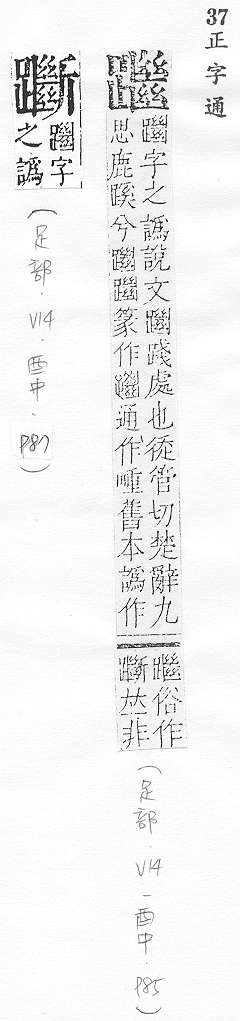 37正字通
字之譌說文踐處也徒管切楚辭九
思鹿蹊兮篆作通作畽舊本譌作
俗作
躖𠀤非
(足部.V14-酉中.P85)
躖
字
之譌
(足部.V14.酉中.P87)